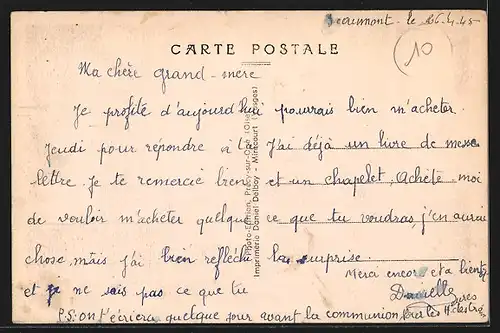 Beaumont - le 26.4.45
10
CARTE POSTALE
Ma chère grand-mère
Je profite d'aujourd'hui
Jeudi pour répondre à ta
lettre. Je te remercie bien
de vouloir m'acheter quelque
chose, mais j'ai bien refléchi
et je ne sais pas ce que tu
pourrais bien m'acheter.
J'ai déjà un livre de messe
et un chapelet, Achète-moi
ce que tu voudras, j'en aurai
la surprise.
Merci encore et a bientôt
Danielle
P.S. on t'écriera quelque jour avant la communion pour les
Photo-Edition, Précy-sur-Oise (Oise)
Imprimerie Daniel Delboy - Mirecourt (Vosges)